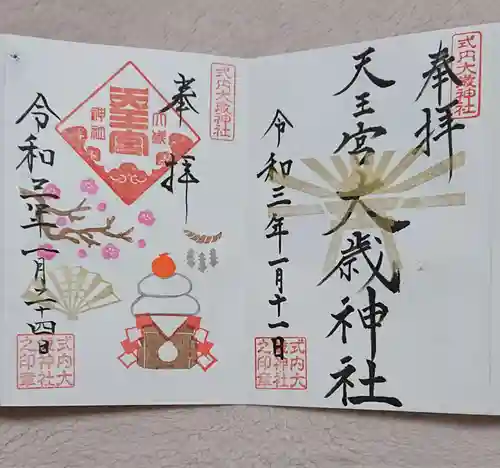 式内大歳神社
奉拝
天王宮大歳神社
令和三年一月十一日
式内大
歳神社
之印章
式内大歳神社
奉拝
天王宮
大歳
神社
令和三年一月二十四日
式内大
歳神社
之印章